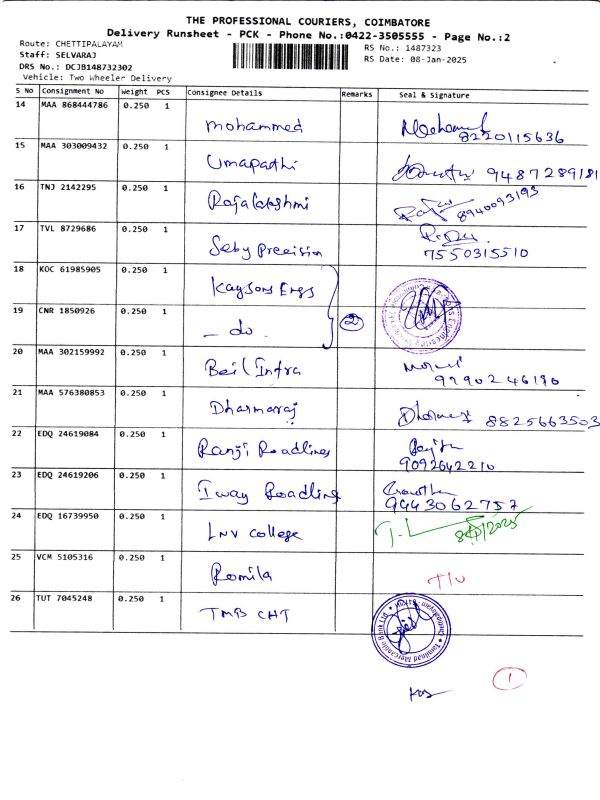 THE PROFESSIONAL COURIERS, COIMBATORE
Delivery Runsheet - PCK - Phone No.:0422-3505555 - Page No.:2
Route: CHETTIPALAYAM
Staff: SELVARAJ
DRS No.: DCJB148732302
Vehicle: Two Wheeler Delivery
RS No.: 1487323
RS Date: 08-Jan-2025
S No Consignment No Weight PCS Consignee Details Remarks Seal & Signature
14 MAA 868444786 0.250 1 Mohammed 8220115636
15 MAA 303009432 0.250 1 Umapathi 9487289181
16 TNJ 2142295 0.250 1 Rajalakshmi 8940093193
17 TVL 8729686 0.250 1 Seby Precision 7550315510
18 KOC 61985905 0.250 1 Kaysons Engs
19 CNR 1850926 0.250 1 - do - 2
20 MAA 302159992 0.250 1 Beil Infra
21 MAA 576380853 0.250 1 Dharmaraj 8825663503
22 EDQ 24619084 0.250 1 Ranji Roadlines 9092642210
23 EDQ 24619206 0.250 1 Iway Roadline 9443062757
24 EDQ 16739950 0.250 1 LNV College
25 VCM 5105316 0.250 1 Romila
26 TUT 7045248 0.250 1 TMB CHT
Tamilnad Mercantile Bank Ltd.
1